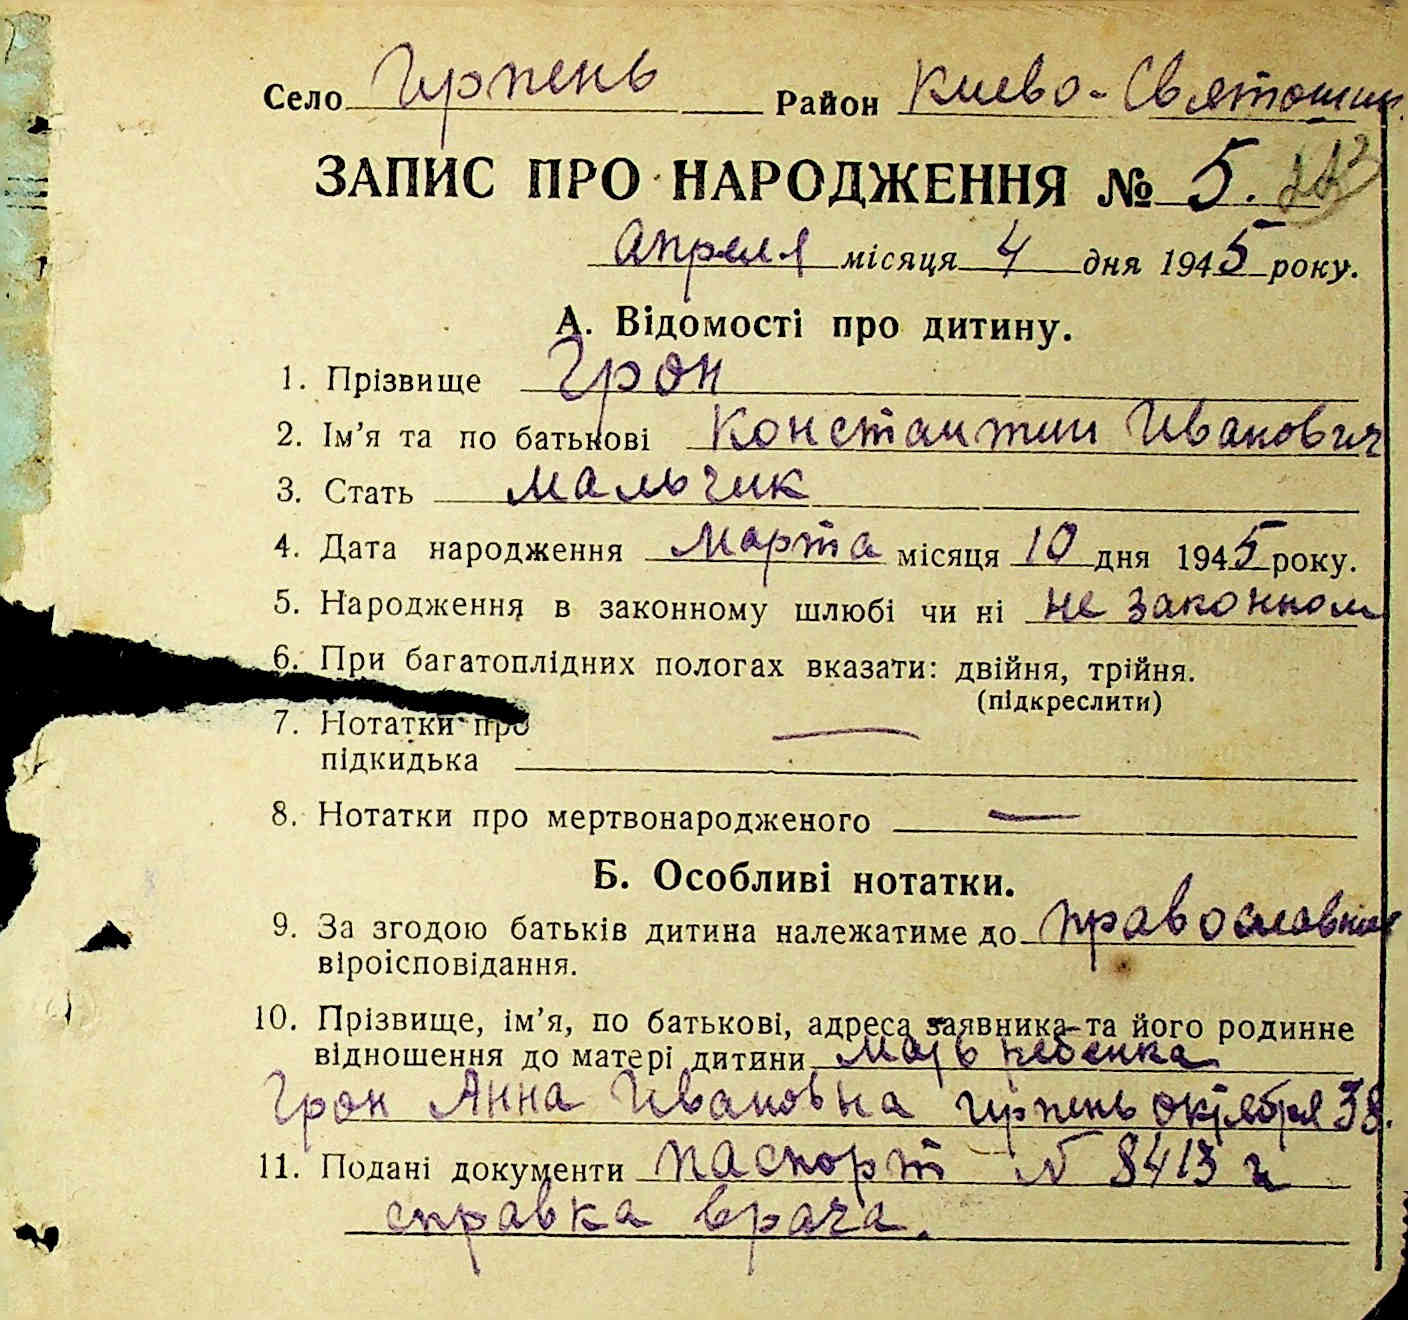 Село Ирпень Район Киево-Святошин.
ЗАПИС ПРО НАРОДЖЕННЯ № 5.
апреля місяця 4 дня 1945 року.
А. Відомості про дитину.
1. Прізвище Грон
2. Ім'я та по батькові Константин Иванович
3. Стать мальчик
4. Дата народження Марта місяця 10 дня 1945 року.
5. Народження в законному шлюбі чи ні не законном
6. При багатоплідних пологах вказати: двійня, трійня.
(підкреслити)
7. Нотатки про
підкидька —
8. Нотатки про мертвонародженого —
Б. Особливі нотатки.
9. За згодою батьків дитина належатиме до православное
віроісповідання.
10. Прізвище, ім'я, по батькові, адреса заявника та його родинне
відношення до матері дитини мать ребенка
Грон Анна Ивановна Ирпень октября 38.
11. Подані документи паспорт № 8413 и
справка врача.